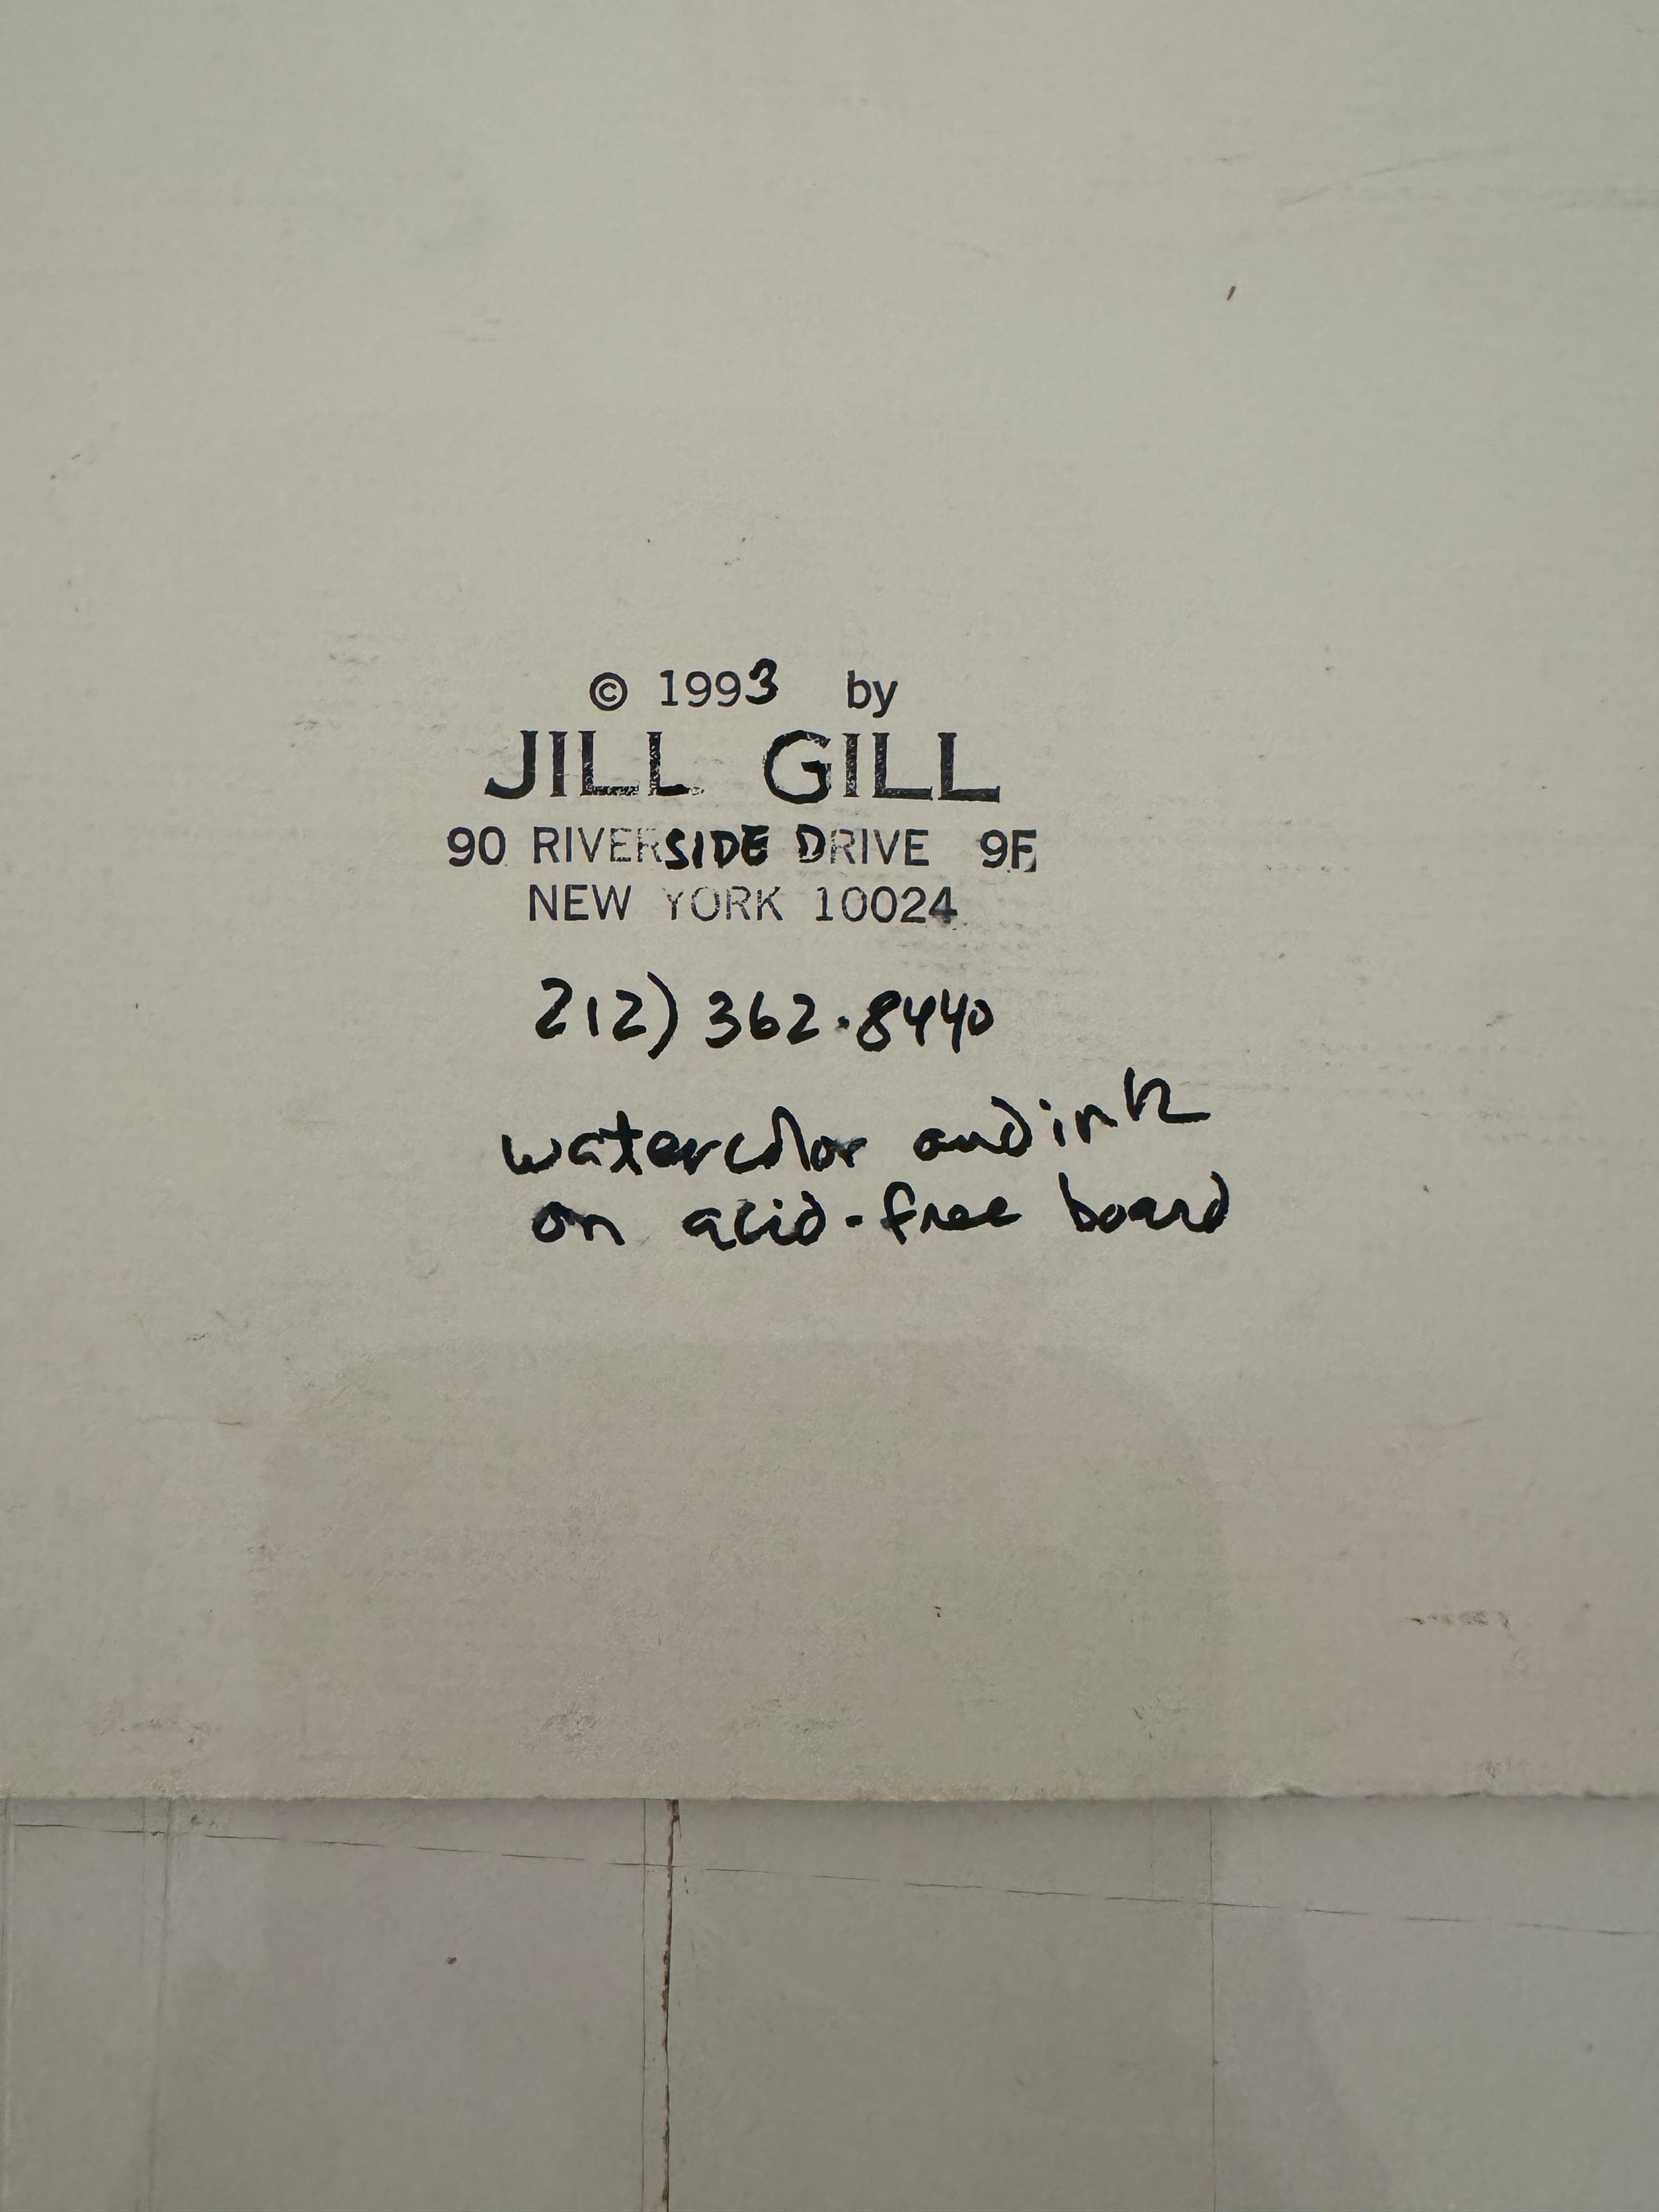 © 1993 by
JILL GILL
90 RIVERSIDE DRIVE 9F
NEW YORK 10024
212) 362.8440
watercolor and ink
on acid-free board